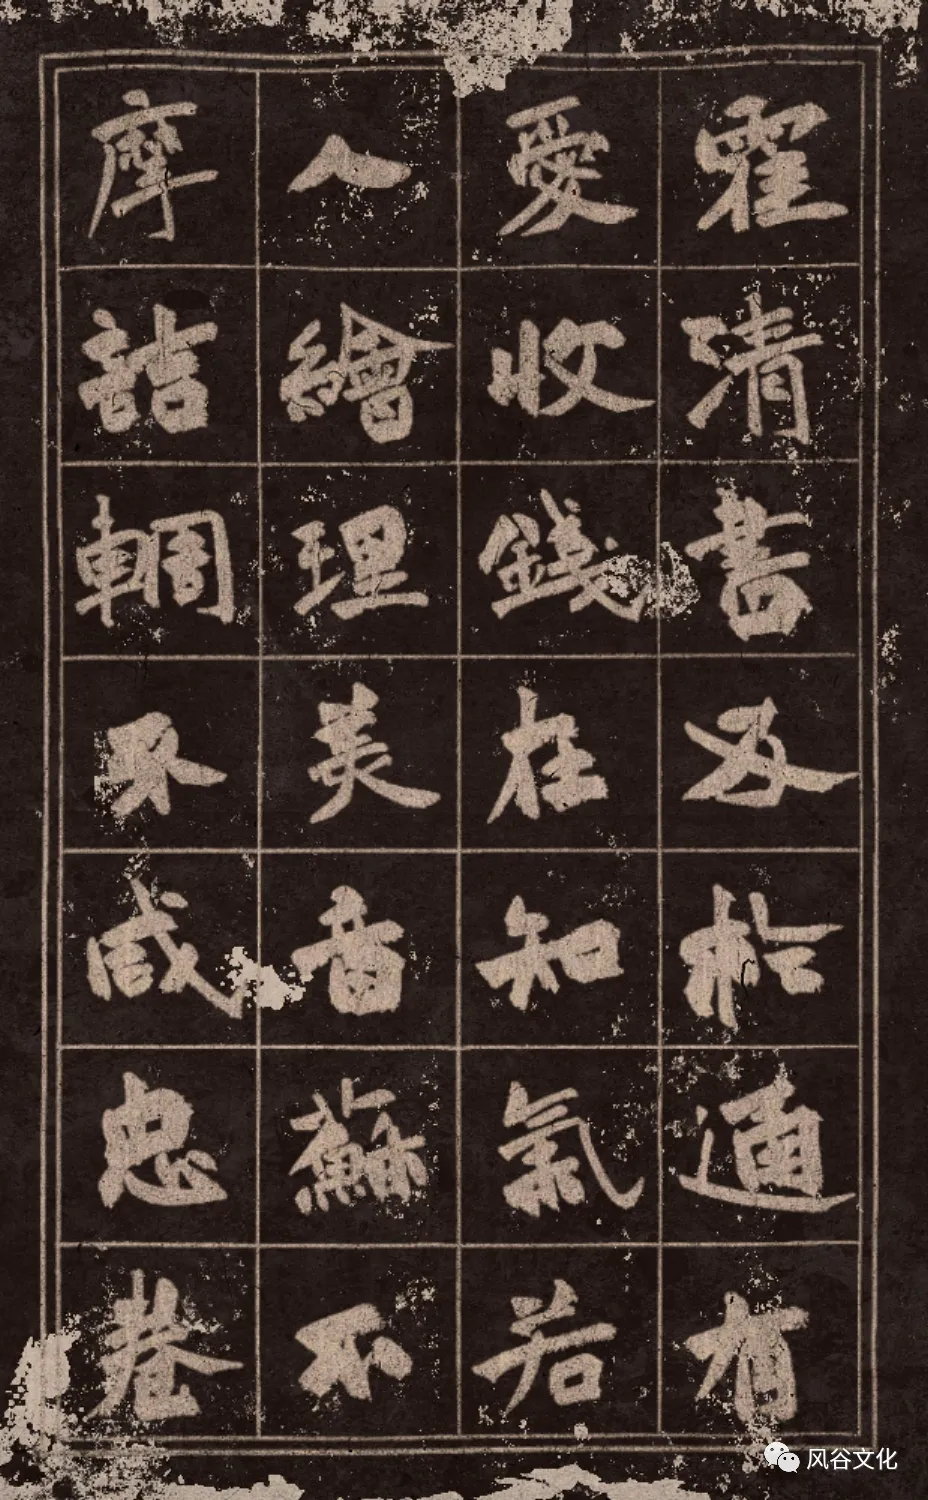 霍清書及於通有
愛收錢柱知氣若
人繪理美香蘇不
摩詰輞不咸忠巷
风谷文化